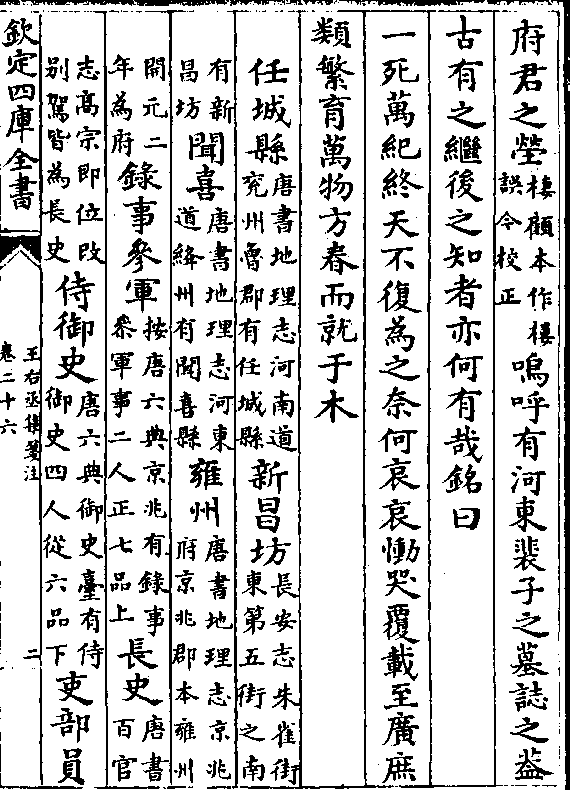 府君之塋棲顧本作樓誤今校正嗚呼有河東裴子之墓誌之葢
古有之繼後之知者亦何有哉銘曰
一死萬紀終天不復為之奈何哀哀慟哭覆載至廣庶
類繁育萬物方春而就于木
任城縣唐書地理志河南道兖州魯郡有任城縣新昌坊長安志朱雀街東第五街之南
有新昌坊聞喜唐書地理志河東道絳州有聞喜縣雍州唐書地理志京兆府京兆郡本雍州
開元二年為府錄事參軍按唐六典京兆有錄事叅軍事二人正七品上長史唐書百官
志髙宗即位改别駕皆為長史侍御史唐六典御史臺有侍御史四人從六品下吏部員
欽定四庫全書
王右丞集箋注
卷二十六
二